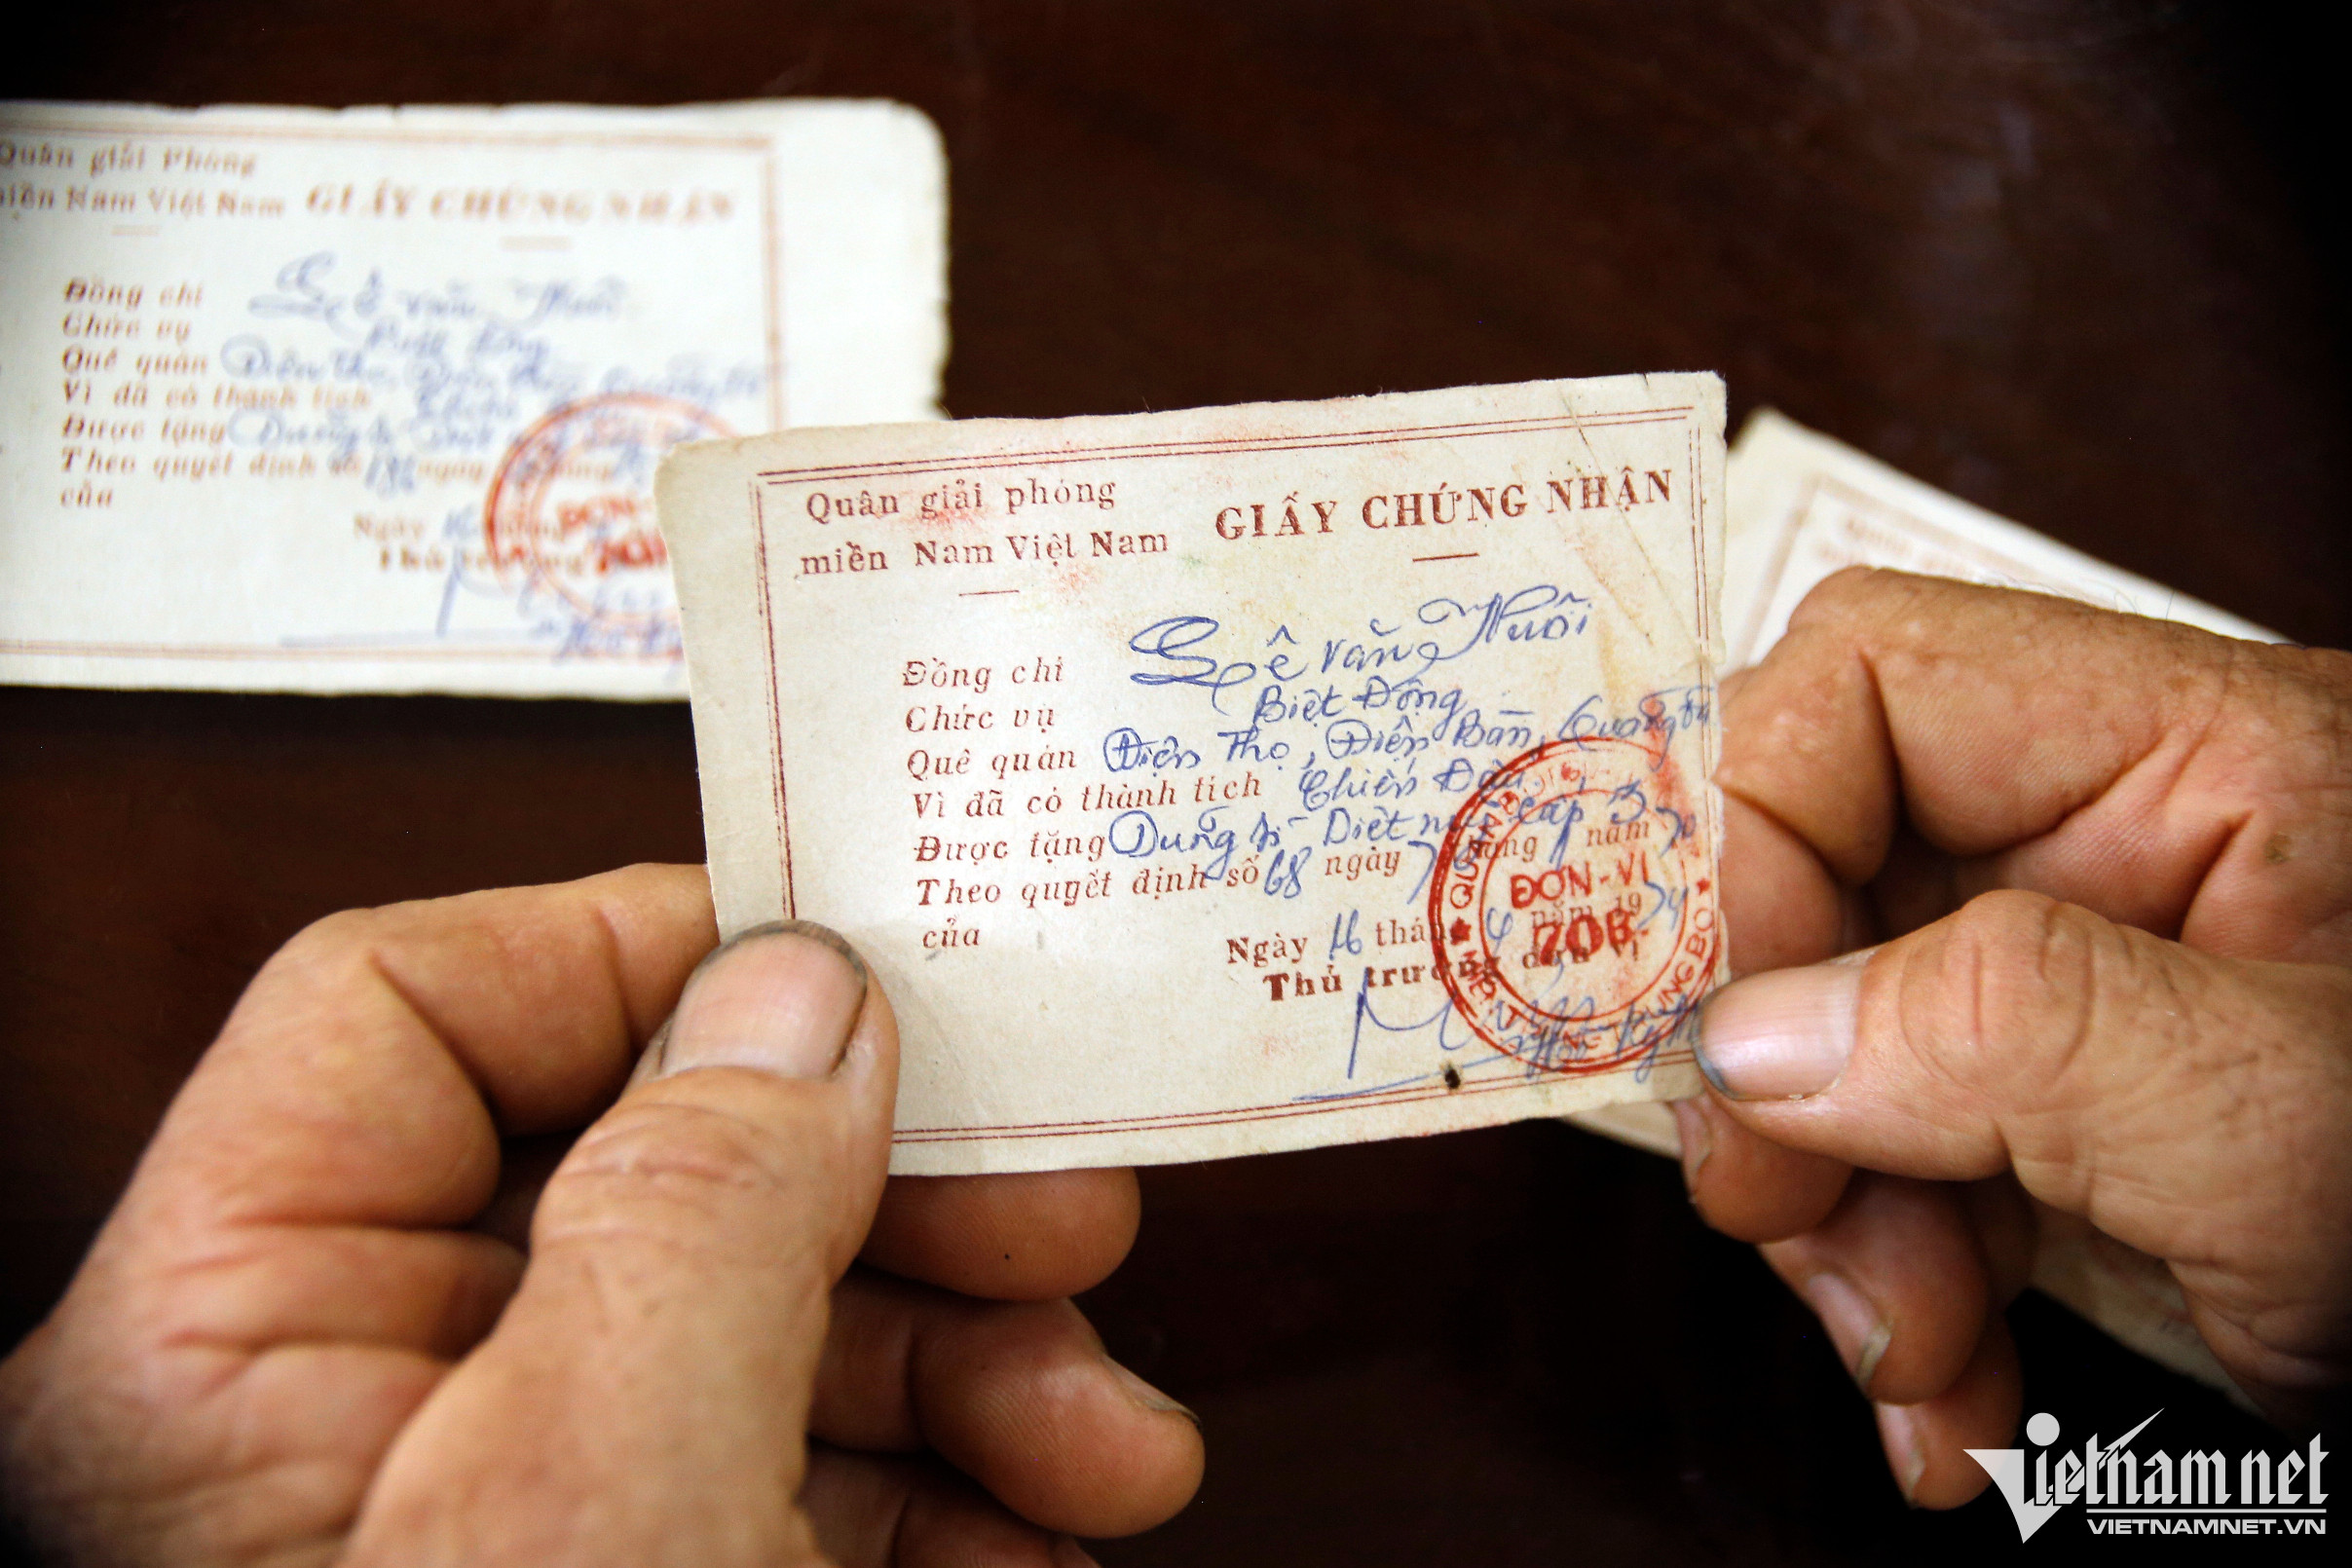 Quân giải Phóng
miền Nam Việt Nam GIẤY CHỨNG NHẬN
Đồng chí Lê Văn Nuôi
Chức vụ
Quê quán Điện Thọ, Điện Bàn
Vì đã có thành tích Chiến
Được tặng Dũng sĩ
Theo quyết định số ngày
của
Ngày
Thủ trưởng
ĐƠN-
Quân giải phóng
miền Nam Việt Nam GIẤY CHỨNG NHẬN
Đồng chí Lê Văn Nuôi
Chức vụ Biệt Động
Quê quán Điện Thọ, Điện Bàn, Quảng
Vì đã có thành tích Chiến Đấu
Được tặng Dũng sĩ Diệt mỹ cấp 3
Theo quyết định số 68 ngày 7 tháng năm 70
của
Ngày 16 tháng 4 năm 1974
Thủ trưởng đơn vị
ĐƠN-VỊ
70B
TRUNG BỘ
Vietnamnet
VIETNAMNET.VN